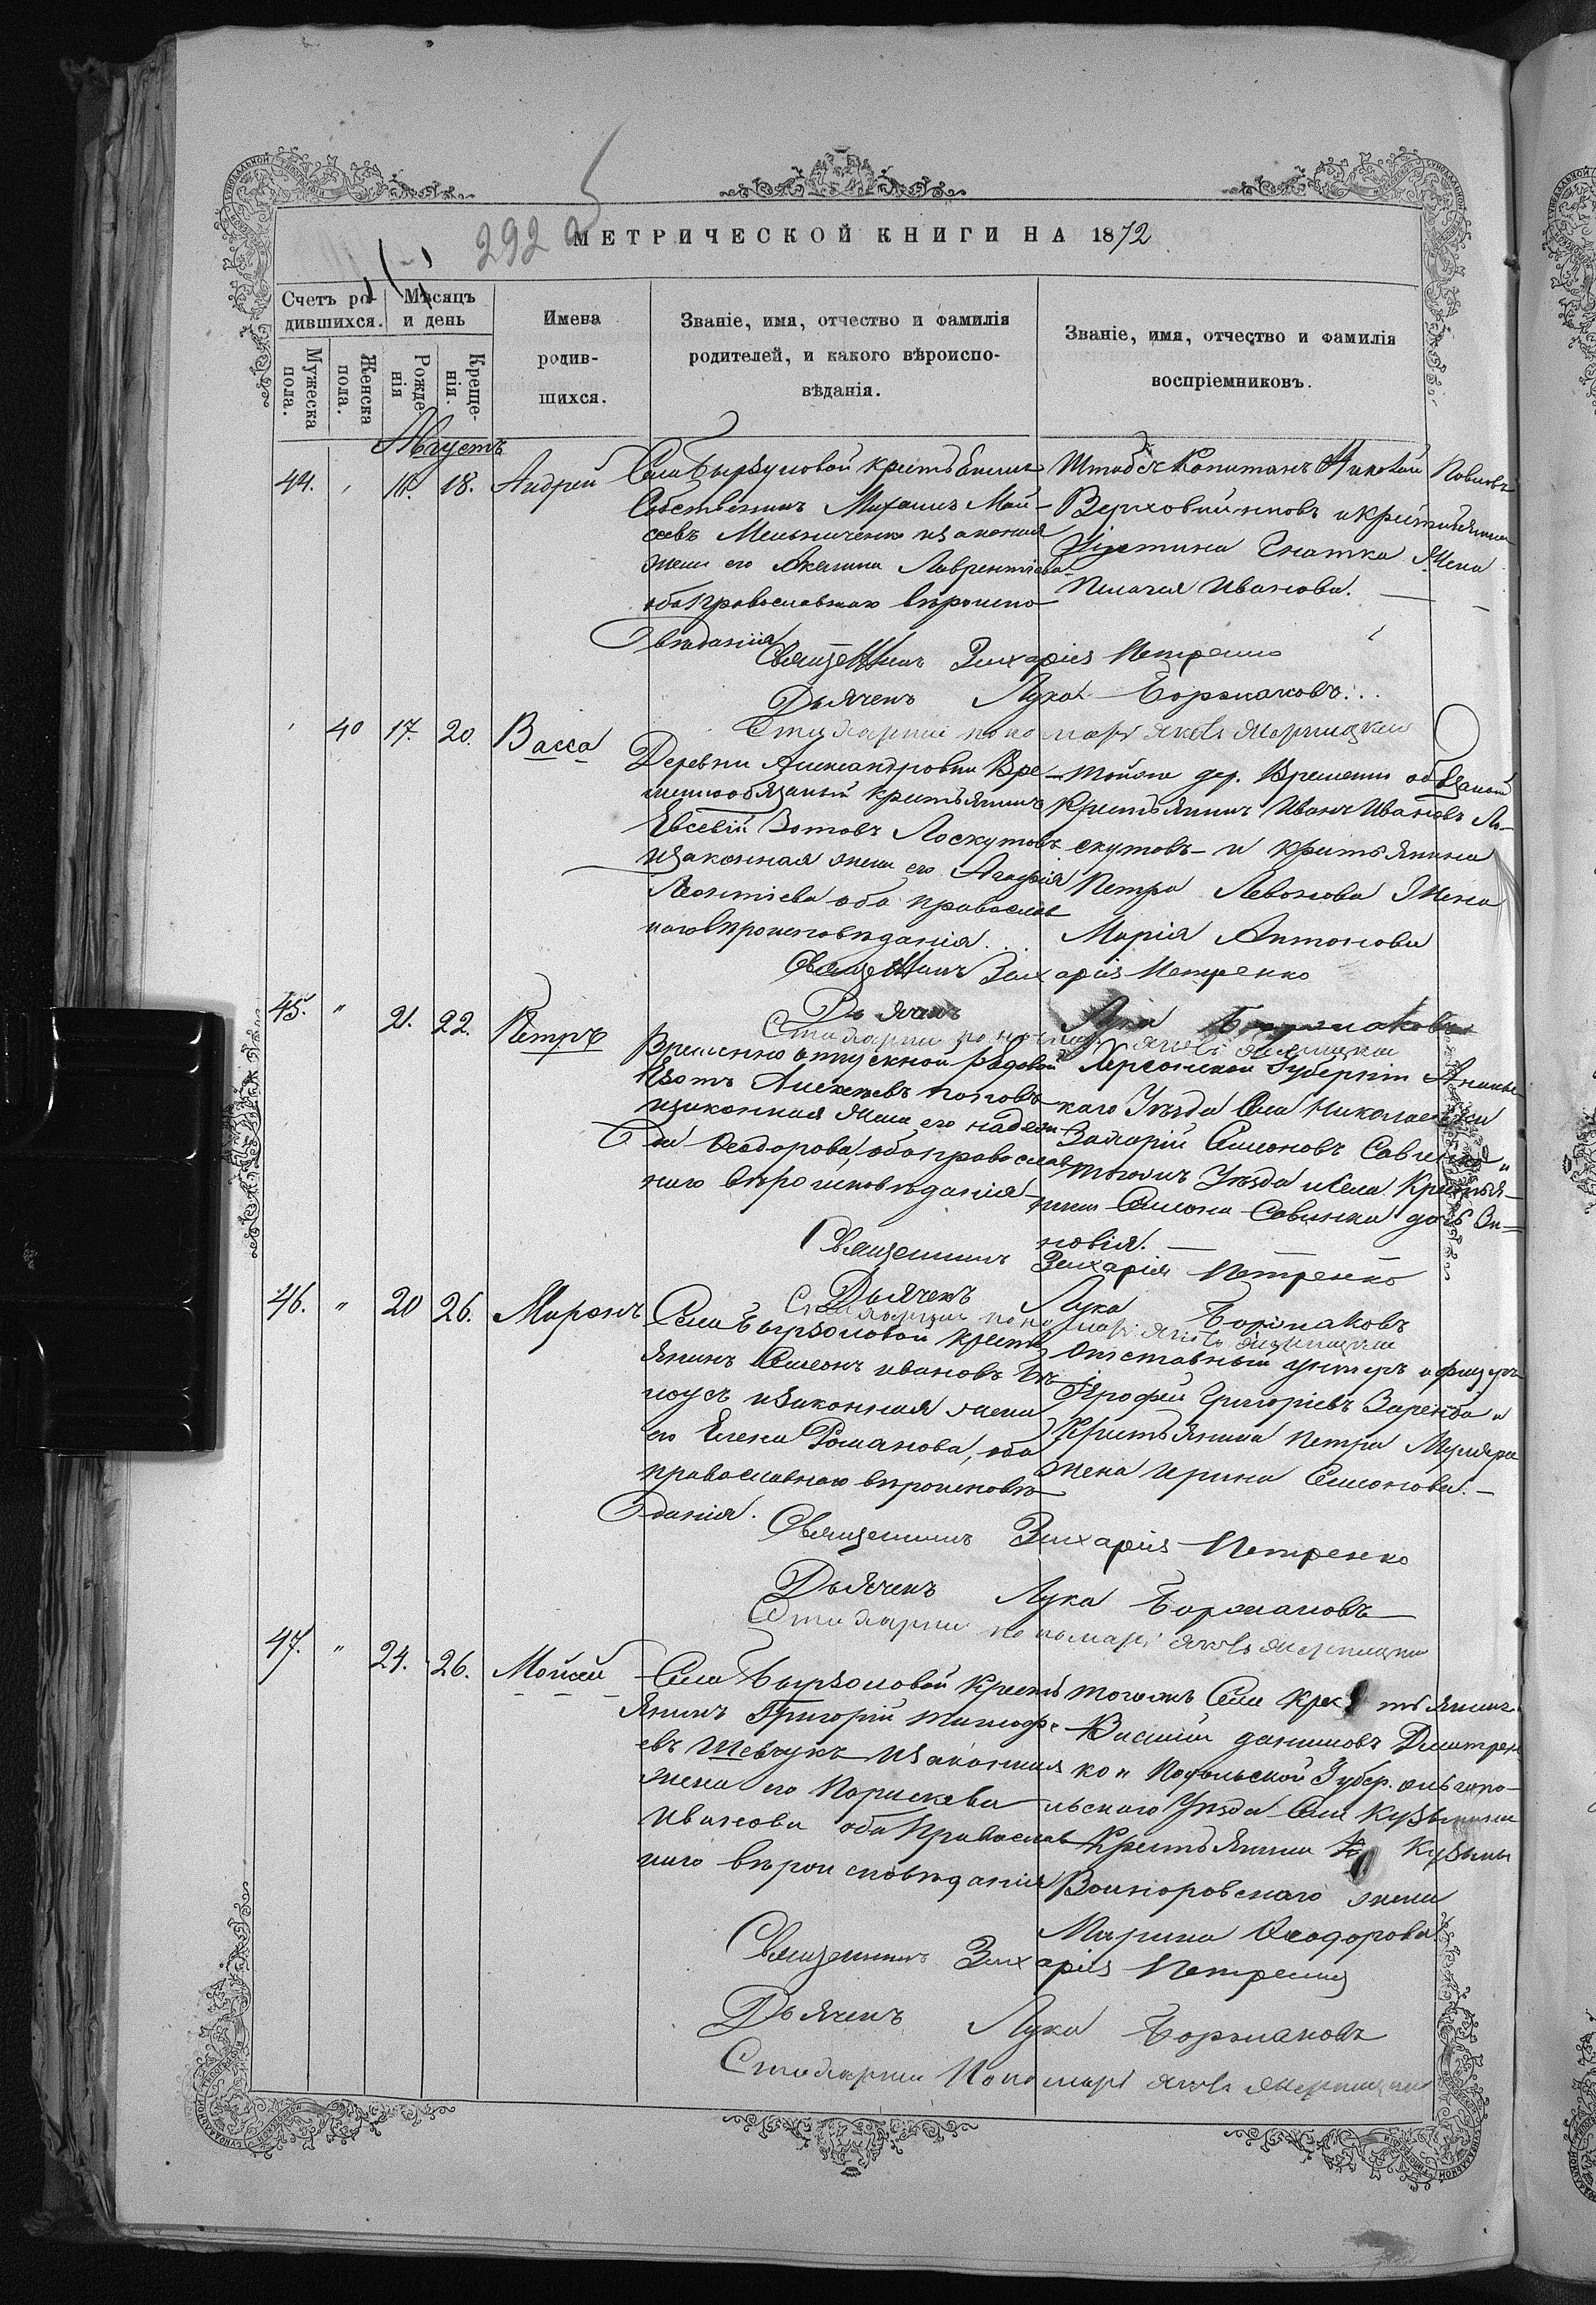 292
МЕТРИЧЕСКОЙ КНИГИ НА 1872
Счетъ ро-
дившихся.
Мѣсяцъ
и день
Имена
родив-
шихся.
Званіе, имя, отчество и фамилія
родителей, и какого вѣроиспо-
вѣданія.
Званіе, имя, отчество и фамилія
воспріемниковъ.
Мужеска
пола.
Женска
пола.
Рожде
нія
Креще-
нія.
Августъ
44. 18. Андрей
Села Бырзуловой крестьянинъ
Собственникъ Михаилъ Мой-
сеевъ Мельниченко и законная
жена его Акелина Лаврентіева
оба православнаго вѣроиспо-
вѣданія
Штабсъ Капитанъ Павловъ
Верховйниковъ и крестьянина
Гнатка жена
Пелагея Иванова.
Священникъ Захарія Петренко
Дьячекъ Лука Боржаковъ
Стихарный пономарь Яковъ
40 17. 20. Васса
Деревни Александровки Вре-
меннообязаный крестьянинъ
Евсевій Зотовъ Лоскутовъ
и законная жена его Агафія
Леонтіева оба православ
наго вѣроисповѣданія
тойже дер. Временно обязаной
Крестьянинъ Иванъ Ивановъ Ло-
скутовъ и крестьянина
Петра Левонова жена
Марія Антонова
Священникъ Захарія Петренко
Дьячекъ Лука Боржаковъ
Стихарный пономарь Яковъ
45. " 21. 22. Петръ
Временно отпускной рядовой
Изотъ Алексѣевъ Поповъ
и законная жена его Надеж
да Феодорова, оба православ
наго вѣроисповѣданія
Херсонской Губерніи Ананьев
каго Уѣзда Села Николаевки
Захарій Семоновъ Савинко и
тогожъ Уѣзда и Села Крестья-
нина Семона Савинка дочь Зи-
новія.
Священникъ Захарія Петренко
Дьячекъ Лука Боржаковъ
Стихарный пономарь Яковъ
46. " 20 26. Миронъ
Села Бырзоловой кресть
янинъ Семенъ Ивановъ Бѣ
лоусъ и законная жена
его Елена Романова, оба
православнаго вѣроисповѣ
данія.
Отставный унтеръ офицеръ
Ярофей Григоріевъ Заремба и
Крестьянина Петра Муляра
жена Ирина Семонова.
Священникъ Захарія Петренко
Дьячекъ Лука Боржаковъ
Стихарный пономарь Яковъ
47. " 24. 26. Мойсей
Села Бырзоловой Кресть
янинъ Григорій Тимофе
евъ Шевчукъ и законная
жена его Параскева
Иванова оба православ
наго вѣроисповѣданія
тогожъ Села крестьянинъ
Василій Даниловъ Дмитрен
ко и Подольской Губер. Ольгопо-
льскаго Уѣзда Села Кузьмина
Крестьянина Кузьмы
Воиноровскаго жена
Марина Феодорова
Священникъ Захарія Петренко
Дьячекъ Лука Боржаковъ
Стихарный Пономарь Яковъ